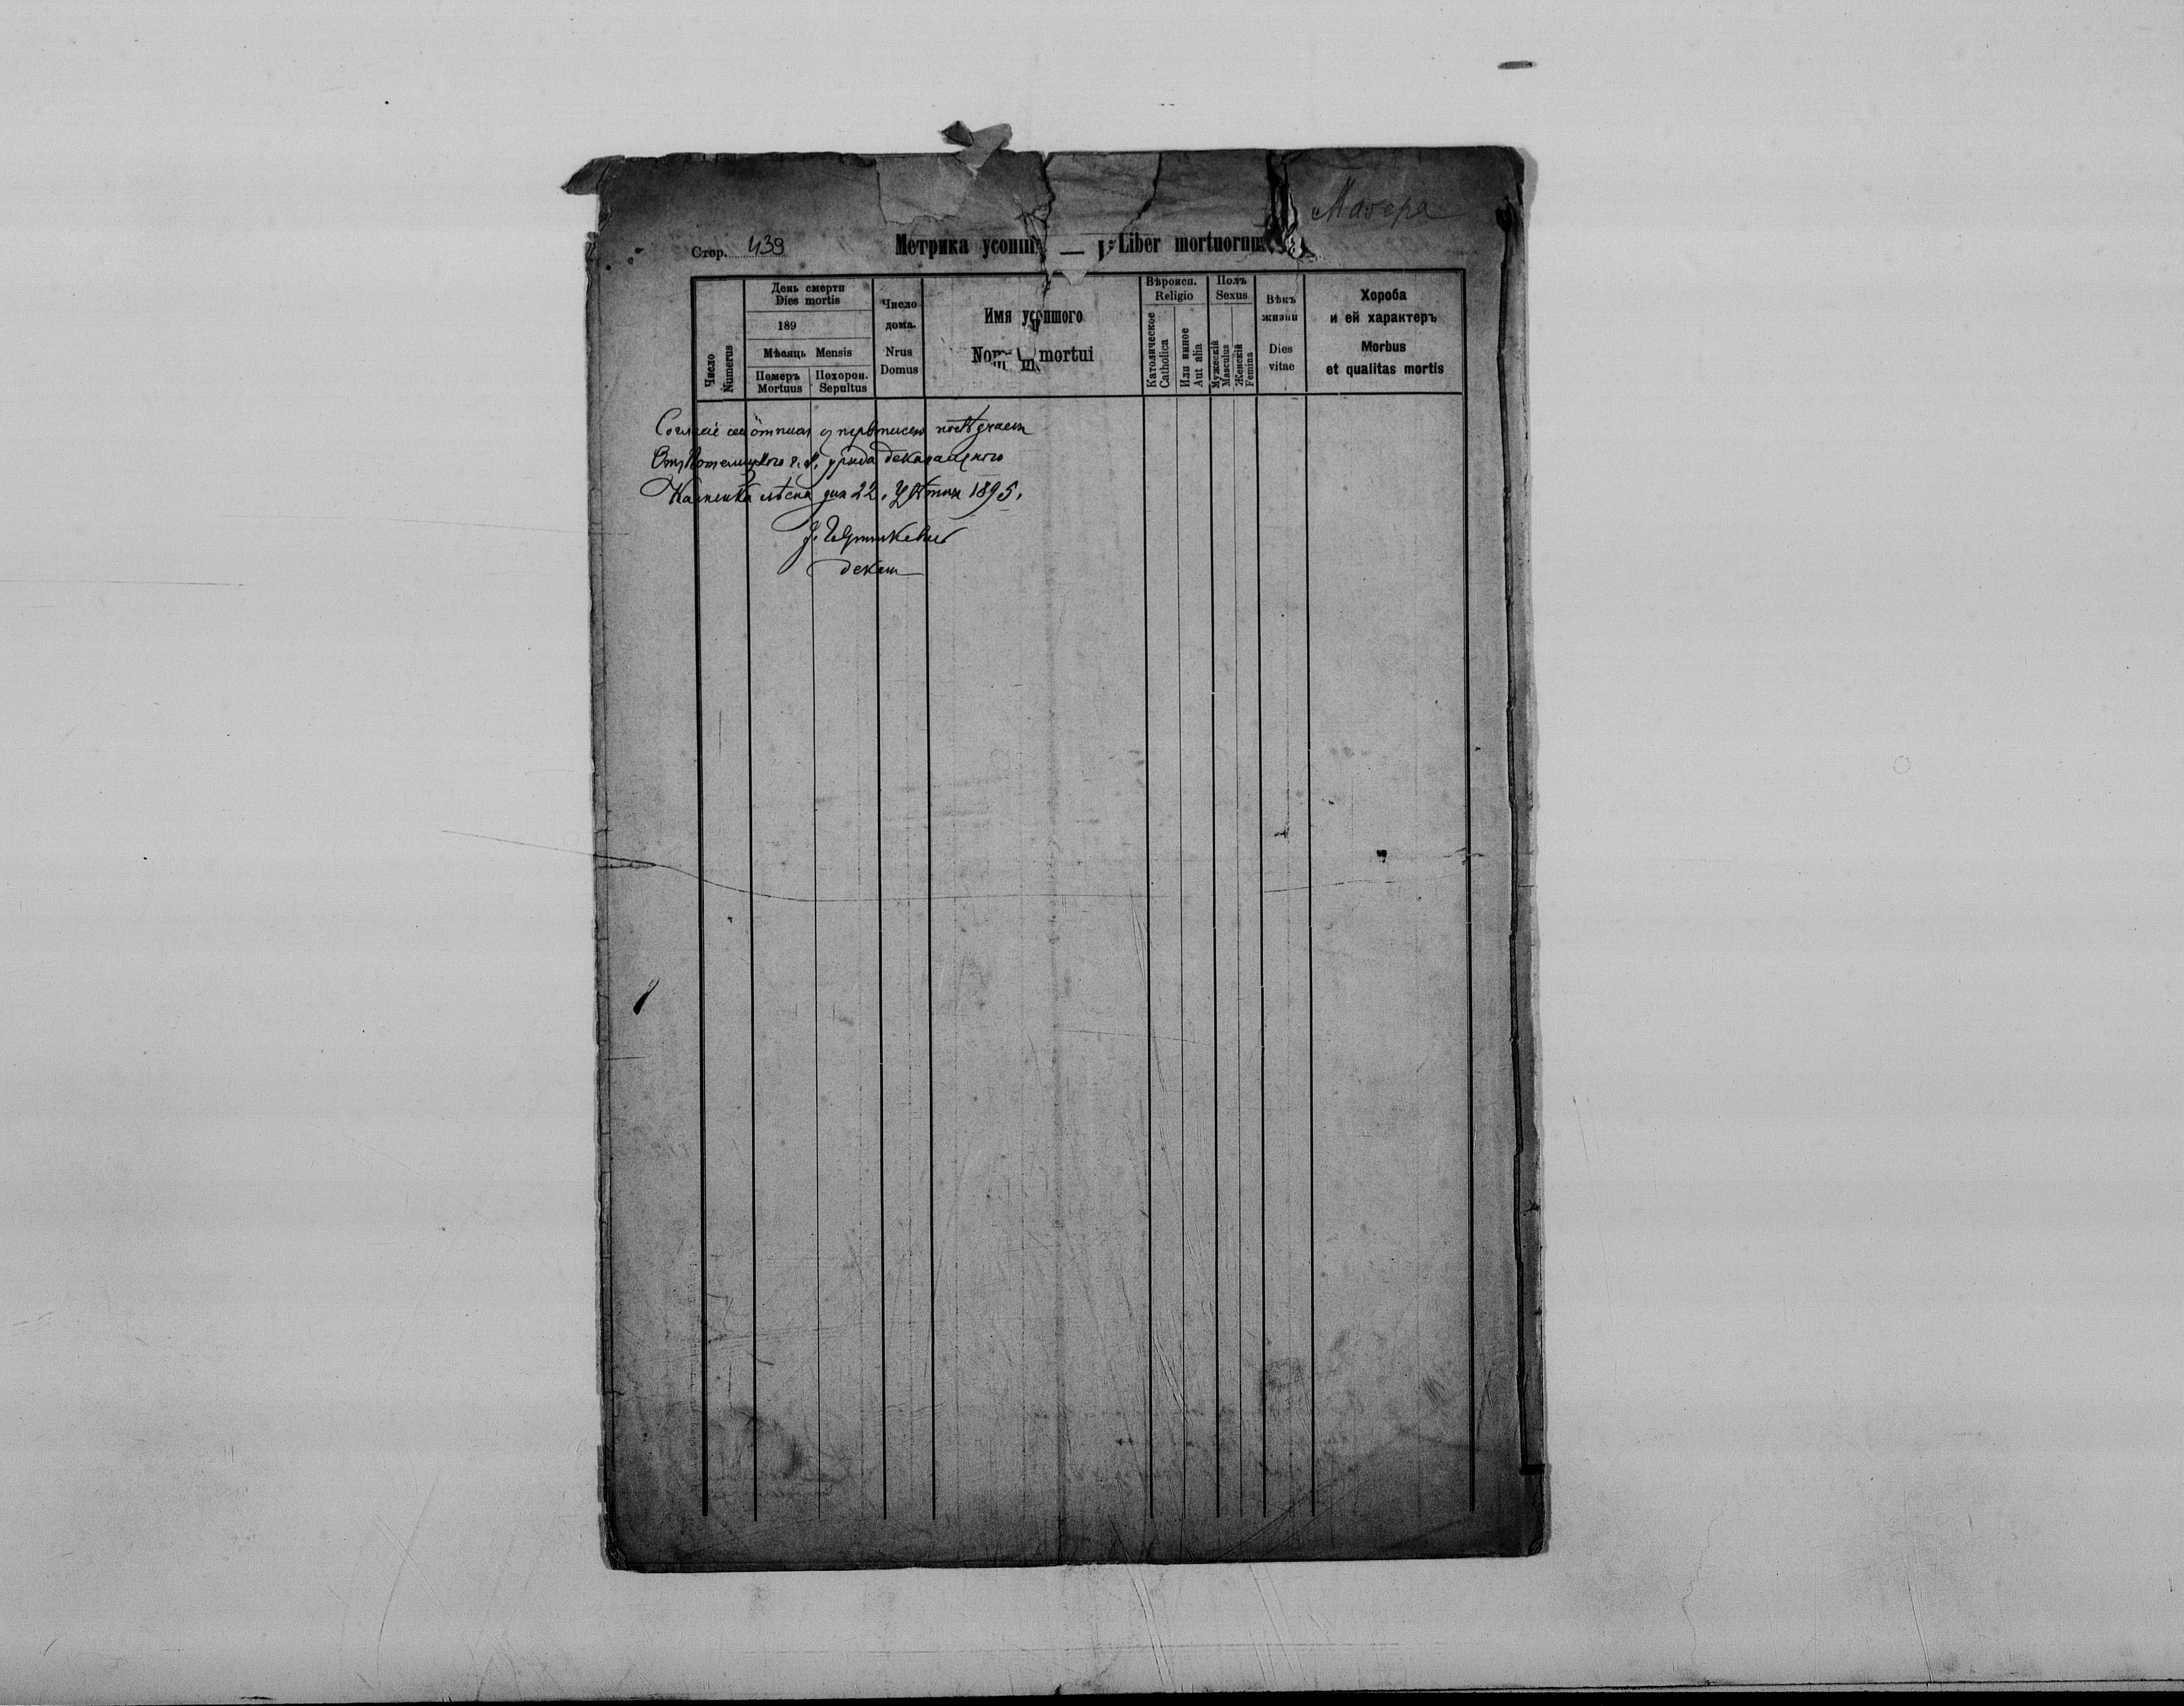 Мазера
Стор. 439
Метрика усопш — Liber mortuorum
Число
Numerus
День смерти
Dies mortis
189
Мѣсяць Mensis
Померъ
Mortuus
Похорон.
Sepultus
Число
дома.
Nrus
Domus
Имя усопшого
mortui
Вѣроисп.
Religio
Католическое
Catholica
Или инное
Aut alia
Полъ
Sexus
Мужескій
Masculus
Женскій
Femina
Вѣкъ
жизни
Dies
vitae
Хороба
и ей характеръ
Morbus
et qualitas mortis
отпису з первописею
Отъ Потелицкого уряда деканального
Каменка лѣсна дня 22. 1895.
декан